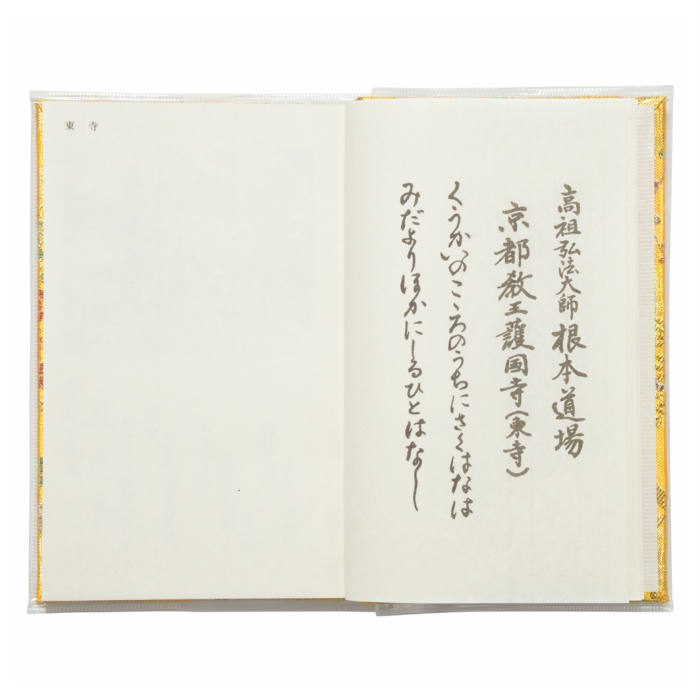 高祖弘法大師根本道場
京都教王護国寺(東寺)
くうかいのこゝろのうちにさくはなは
みだよりほかにしるひとはなし
東寺